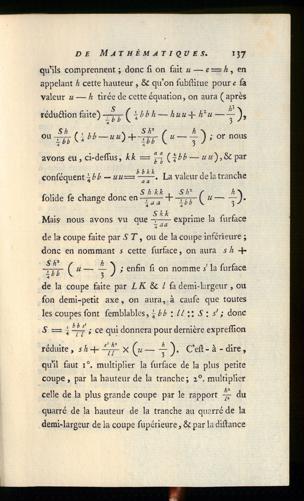 DE MATHÉMATIQUES. 137
qu'ils comprennent ; donc si on fait u — e = h, en
appelant h cette hauteur, & qu'on substitue pour e sa
valeur u — h tirée de cette équation, on aura ( après
réduction faite ) S/¼bb ( ¼ bbh — huu + h²u — h³/3 ),
ou Sh/¼bb ( ¼ bb — uu ) + Sh²/¼bb ( u — h/3 ) ; or nous
avons eu, ci-dessus, kk = aa/bb ( ¼ bb — uu ), & par
conséquent ¼ bb — uu = bbkk/aa. La valeur de la tranche
solide se change donc en Shkk/¼aa + Sh²/¼bb ( u — h/3 ).
Mais nous avons vu que Skk/¼aa exprime la surface
de la coupe faite par S T, ou de la coupe inférieure ;
donc en nommant s cette surface, on aura sh +
Sh²/¼bb ( u — h/3 ) ; enfin si on nomme s' la surface
de la coupe faite par L K & l sa demi-largeur, ou
son demi-petit axe, on aura, à cause que toutes
les coupes sont semblables, ¼ bb : ll :: S : s' ; donc
S = ¼ bbs'/ll ; ce qui donnera pour dernière expression
réduite, sh + s'h²/ll × ( u — h/3 ). C'est - à - dire,
qu'il faut 1°. multiplier la surface de la plus petite
coupe, par la hauteur de la tranche ; 2°. multiplier
celle de la plus grande coupe par le rapport h²/l² du
quarré de la hauteur de la tranche au quarré de la
demi-largeur de la coupe supérieure, & par la distance